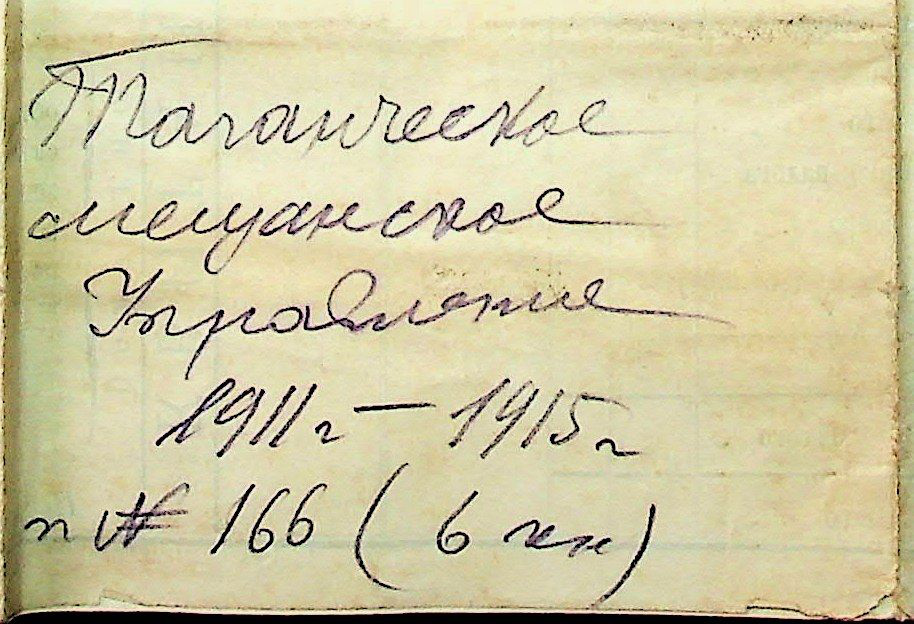 Таганческое
мещанское
Управление
1911 г — 1915 г
п № 166 ( 6 кн )